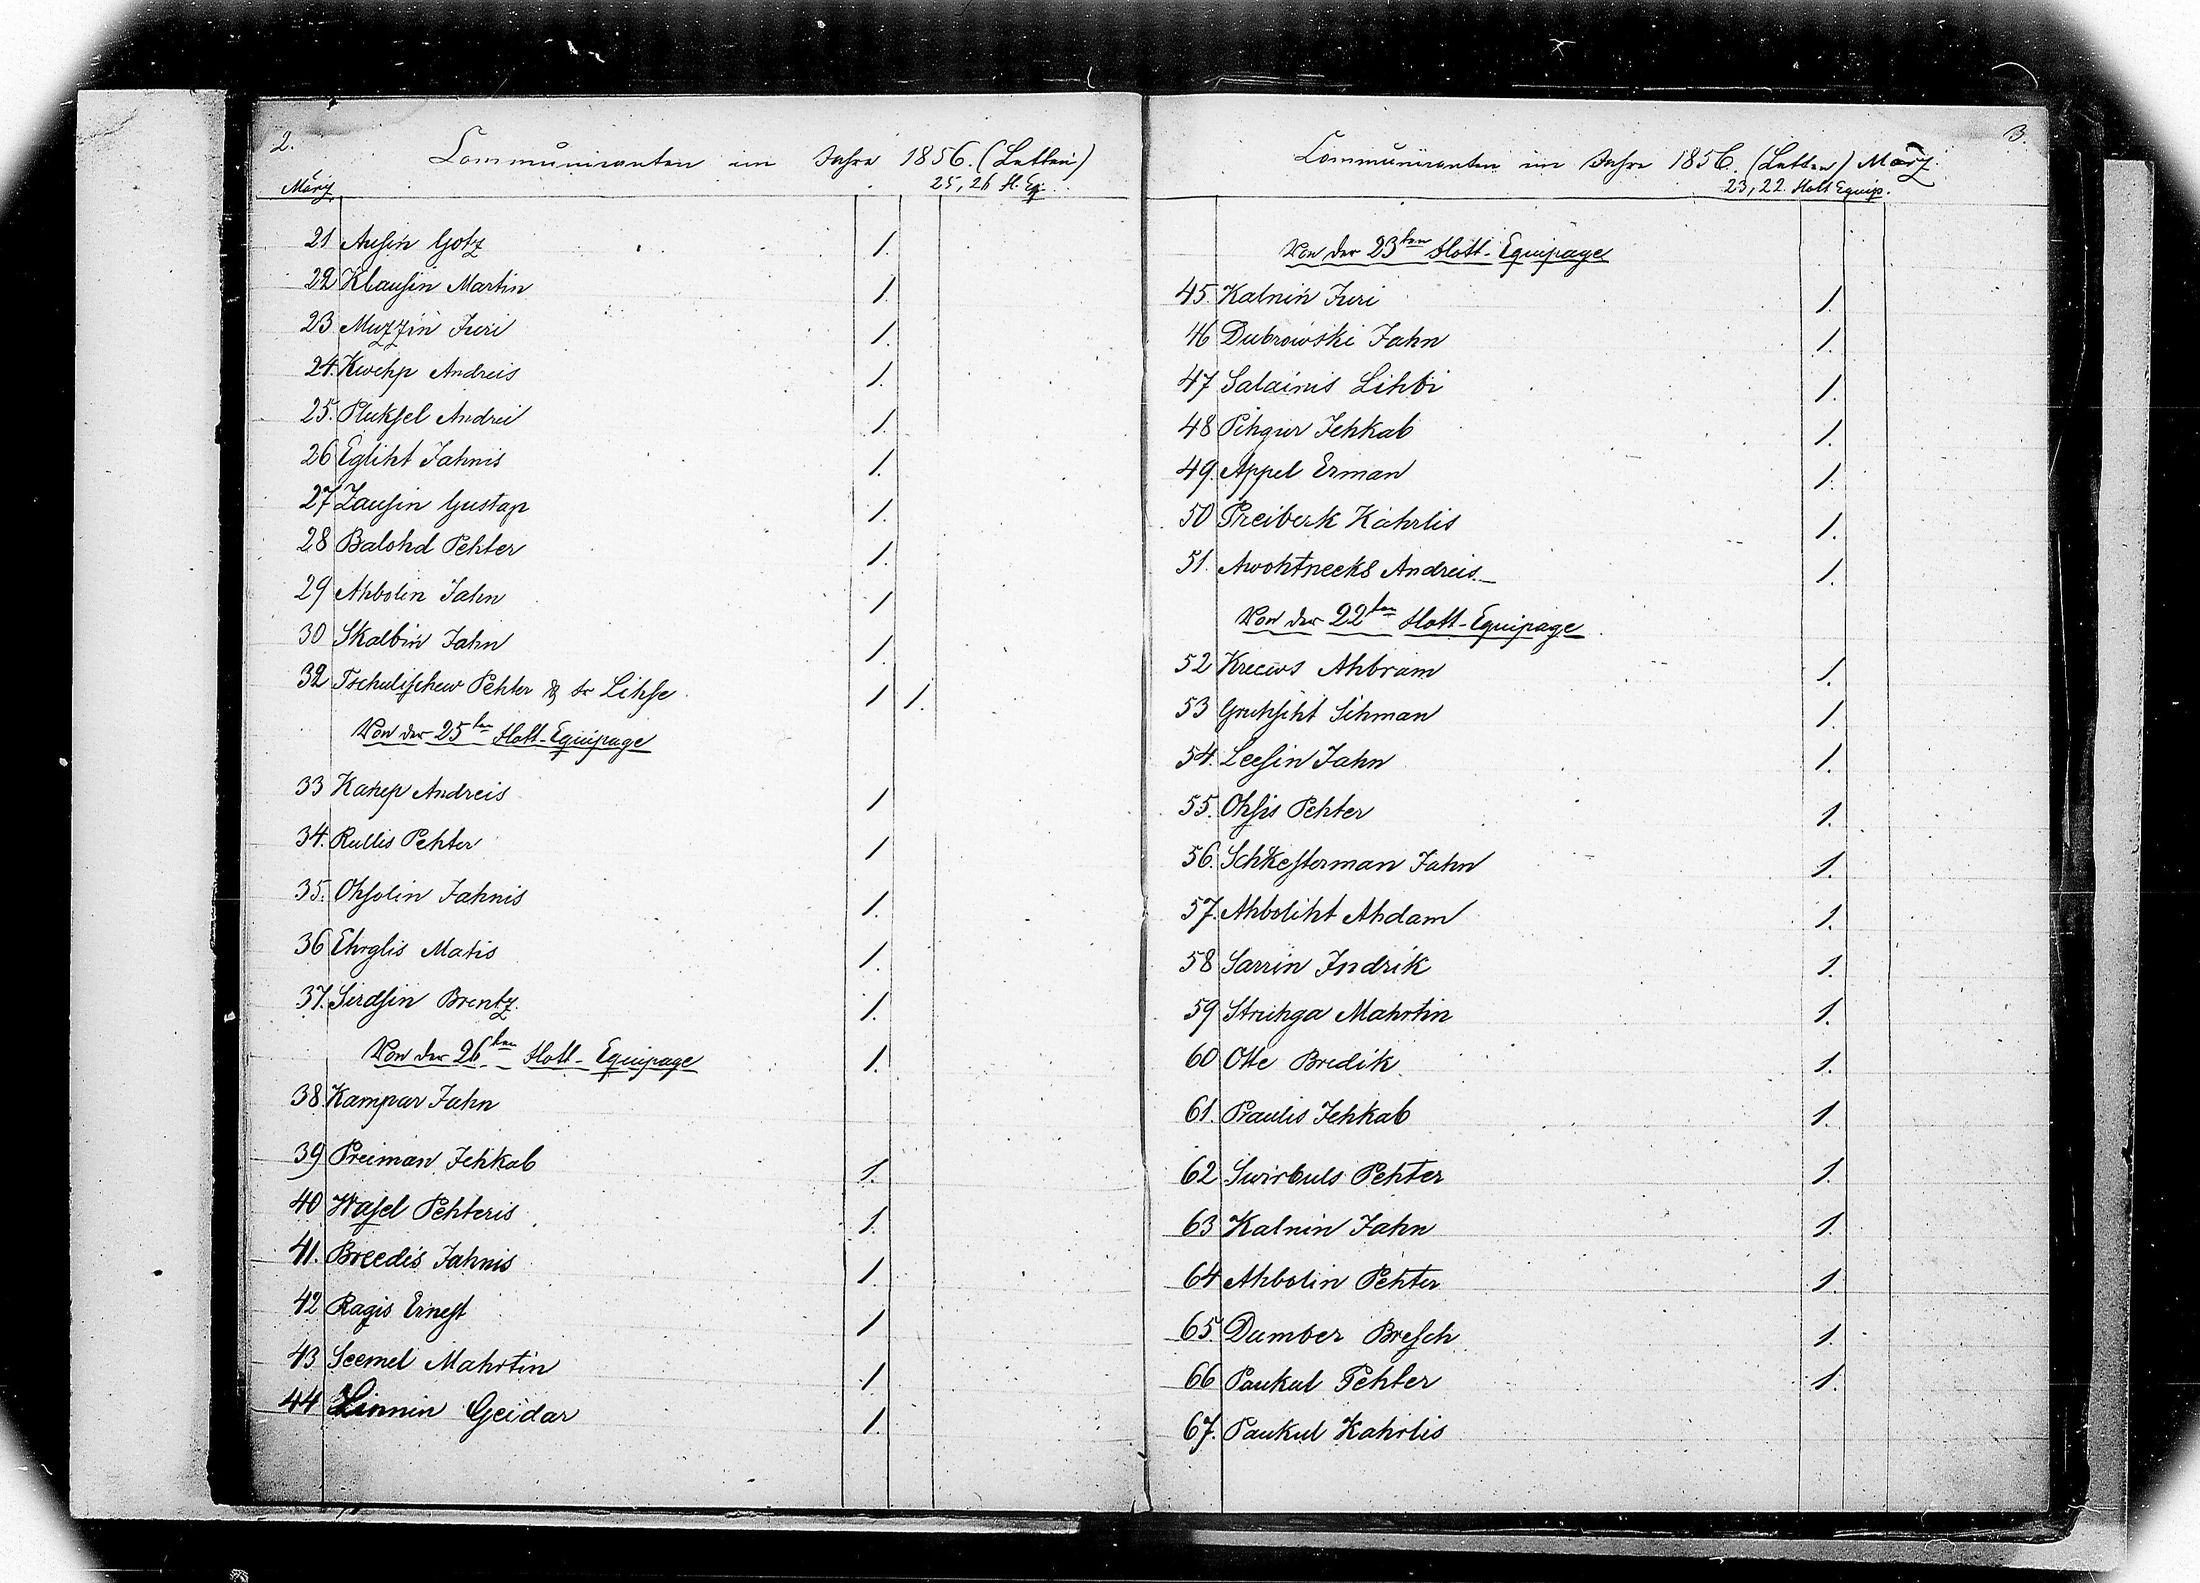 2.
Communicanten im Jahre 1856. (Letten)
März
25, 26 fl. Eq.
21 Ausin Gotz 1.
22 Klausin Martin 1.
23 Muzzin Juri 1.
24. Kwehp Andreis 1.
25. Pluksel Andrei 1.
26 Egliht Jahnis 1.
27 Zausin Gustap 1.
28 Balohd Pehter 1.
29 Ahbolin Jahn 1
30 Skalbin Jahn 1.
32 Tschulischew Pehter & Fr Lihse 1 1.
Von der 25ten Flott-Equipage
33 Kahp Andreis 1
34. Rullis Pehter 1
35. Ohsolin Jahnis 1.
36 Ehrglis Matis 1.
37. Sirdsin Brentz 1.
Von der 26ten Flott-Equipage 1.
38 Kampar Jahn
39 Preiman Jehkab 1.
40 Wasel Pehteris 1.
41. Breedis Jahnis 1.
42 Ragis Ernest 1
43 Seemel Mahrtin 1
44 Linnin Geidar 1.
3.
Communicanten im Jahre 1856. (Letten) März.
23, 22. Flott Equip.
Von der 23ten Flott-Equipage
45. Kalnin Juri 1.
46 Dubrowski Jahn 1.
47 Salainis Lihbi 1.
48 Pihgur Jehkab 1.
49. Appel Erman 1.
50 Preiberk Kahrlis 1.
51. Awohtneeks Andreis 1.
Von der 22ten Flott-Equipage
52 Kreews Ahbram 1.
53 Gruhsiht Sihman 1.
54. Leesin Jahn 1.
55. Ohsis Pehter 1.
56. Schkesterman Jahn 1.
57. Ahboliht Ahdam 1.
58 Sarrin Indrik 1.
59 Struhga Mahrtin 1.
60 Otte Bredik 1.
61. Praulis Jehkab 1.
62 Swirbuls Pehter 1.
63 Kalnin Jahn 1.
64 Ahbolin Pehter 1.
65. Dumber Bresch 1.
66 Paukul Pehter 1.
67. Paukul Kahrlis